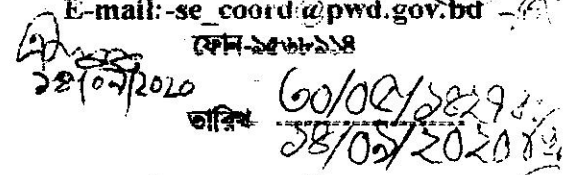 E-mail:-se_coord@pwd.gov.bd
ফোন-৯৫৬৮৯১৪
১৪/০৯/2020
তারিখ ৩০/০৫/১৪২৭
১৪/০৯/২০২০